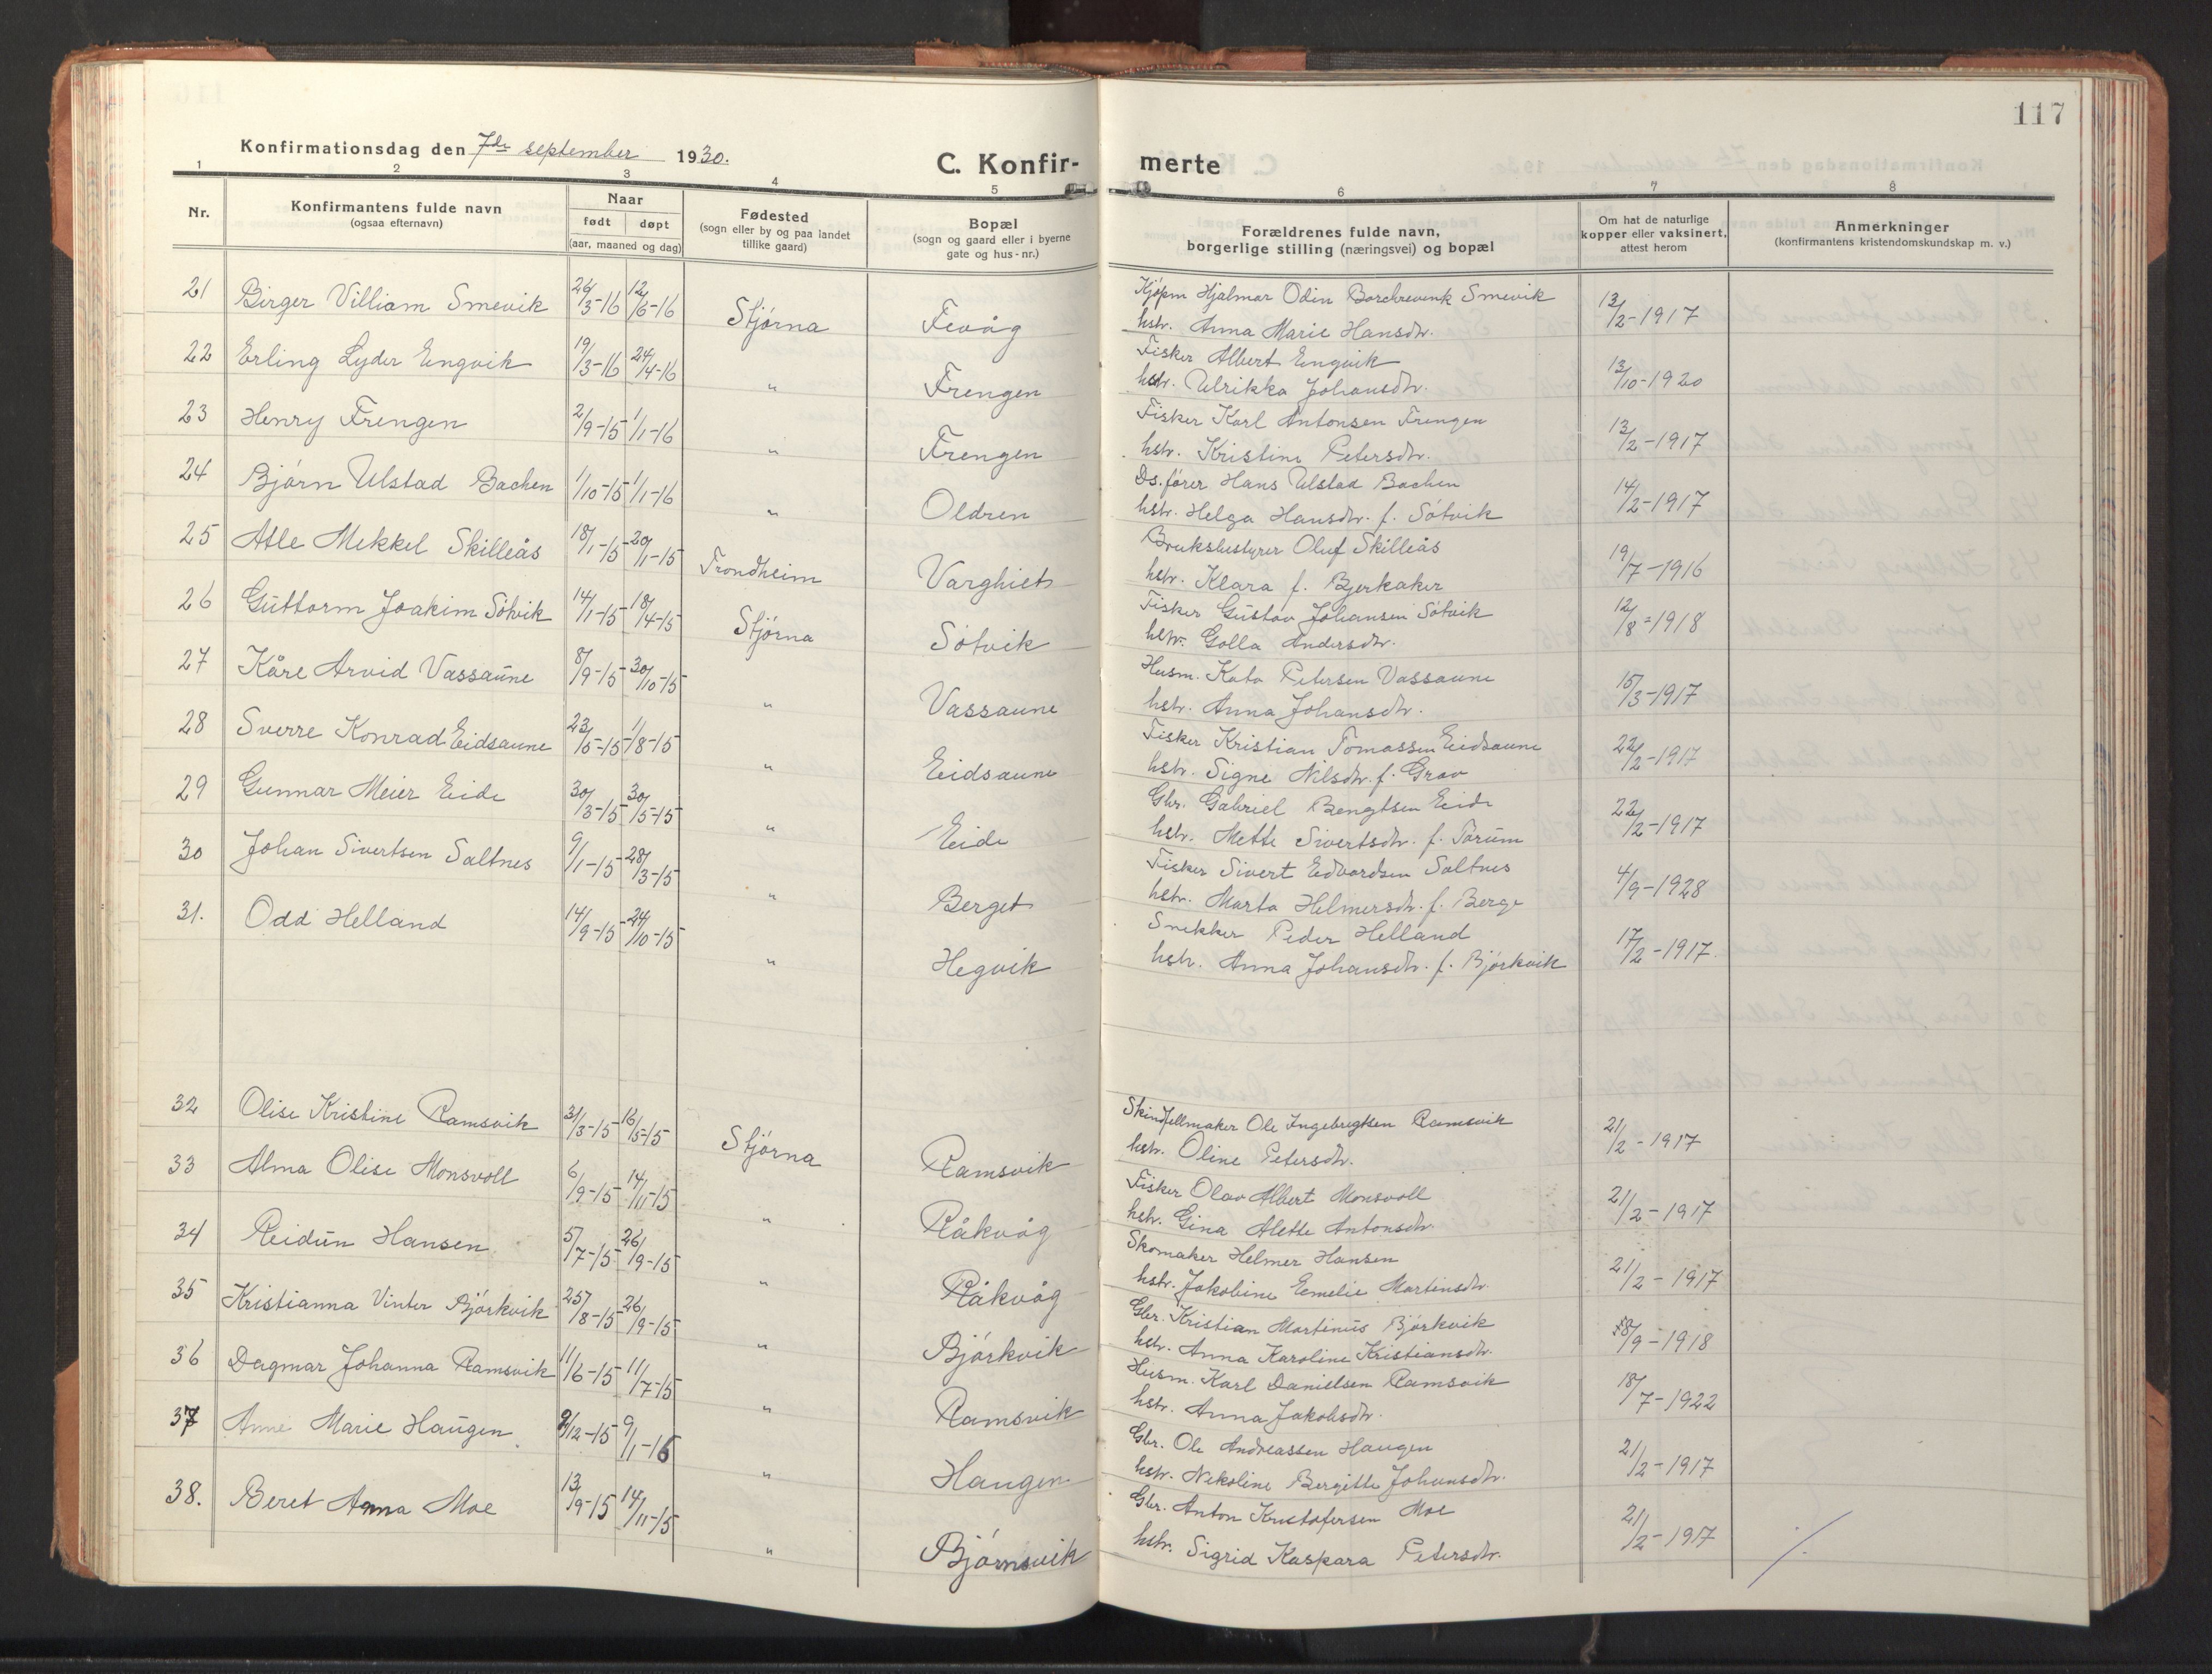 117
Konfirmationsdag den 7de september 1930.
C. Konfir- merte
1 2 3 4 5 6 7 8
Nr.
Konfirmantens fulde navn
(ogsaa efternavn)
Naar
født døpt
(aar, maaned og dag)
Fødested
(sogn eller by og paa landet
tillike gaard)
Bopæl
(sogn og gaard eller i byerne
gate og hus-nr.)
Forældrenes fulde navn,
borgerlige stilling (næringsvei) og bopæl
Om hat de naturlige
kopper eller vaksinert,
attest herom
Anmerkninger
(konfirmantens kristendomskundskap m. v.)
21 Birger Villiam Smevik 24/3-16 12/6-16 Stjørna Fevåg Kjøpm Hjalmar Odin Borchrevenk Smevik 13/2-1917
hstr. Anna Marie Hansdtr.
22 Erling Lyder Engvik 19/3-16 24/4-16 " Frengen Fisker Albert Engvik 13/10-1920
hstr. Ulrikka Johansdtr.
23 Henry Frengen 2/9-15 1/1-16 " Frengen Fisker Karl Antonsen Frengen 13/2-1917
hstr. Kristine Petersdtr.
24 Bjørn Ulstad Bachen 1/10-15 1/1-16 " Oldren Ds.fører Hans Ulstad Bachen 14/2-1917
hstr. Helga Hansdtr. f. Søtvik
25 Atle Mekkel Skilleås 18/1-15 20/1-15 Trondheim Varghiet Bruksbestyrer Oluf Skilleås 19/7-1916
hstr. Klara f. Bjerkaker
26 Guttorm Joakim Søtvik 14/1-15 18/4-15 Stjørna Søtvik Fisker Gustav Johansen Søtvik 12/8-1918
hstr. Golla Andersdtr.
27 Kåre Arvid Vassaune 8/9-15 30/10-15 " Vassaune Husm. Kato Petersen Vassaune 15/3-1917
hstr. Anna Johansdtr.
28 Sverre Konrad Eidsaune 23/5-15 1/8-15 " Eidsaune Fisker Kristian Tomassen Eidsaune 22/2-1917
hstr. Signe Nilsdtr. f. Grav
29 Gunnar Meier Eide 30/3-15 30/5-15 " Eide Gbr. Gabriel Bengtsen Eide 22/2-1917
hstr. Mette Sivertsdtr. f. Tørum
30 Johan Sivertsen Saltnes 9/1-15 28/3-15 " Berget Fisker Sivert Edvardsen Saltnes 4/9-1928
hstr. Marta Helmersdtr. f. Berge
31. Odd Helland 14/9-15 24/10-15 " Hegvik Snekker Peder Helland 17/2-1917.
hstr. Anna Johansdtr. f. Bjørkvik
32 Olise Kristine Ramsvik 31/3-15 16/5-15 Stjørna Ramsvik Skindfellmaker Ole Ingebrigtsen Ramsvik 21/2-1917
hstr. Oline Petersdtr.
33 Alma Olise Monsvoll 6/9-15 14/11-15 " Råkvåg Fisker Olav Albert Monsvoll 21/2-1917
hstr. Gina Alette Antonsdtr.
34 Reidun Hansen 5/7-15 26/9-15 " Råkvåg Skomaker Helmer Hansen 21/2-1917
hstr. Jakobine Emelie Martinsdtr.
35 Kristianna Vinter Bjørkvik 25/8-15 26/9-15 " Bjørkvik Gbr. Kristian Martinus Bjørkvik 18/9-1918
hstr. Anna Karoline Kristiansdtr.
36 Dagmar Johanna Ramsvik 11/6-15 11/7-15 " Ramsvik Husm. Karl Danielsen Ramsvik 18/7-1922
hstr. Anna Jakobsdtr.
37 Anne Marie Haugen 9/12-15 9/1-16 " Haugen Gbr. Ole Andreassen Haugen 21/2-1917
hstr. Nekoline Bergitte Johansdtr.
38. Beret Anna Moe 13/9-15 14/11-15 " Bjørnsvik Gbr. Anton Kristofersen Moe 21/2-1917
hstr. Sigrid Kaspara Petersdtr.